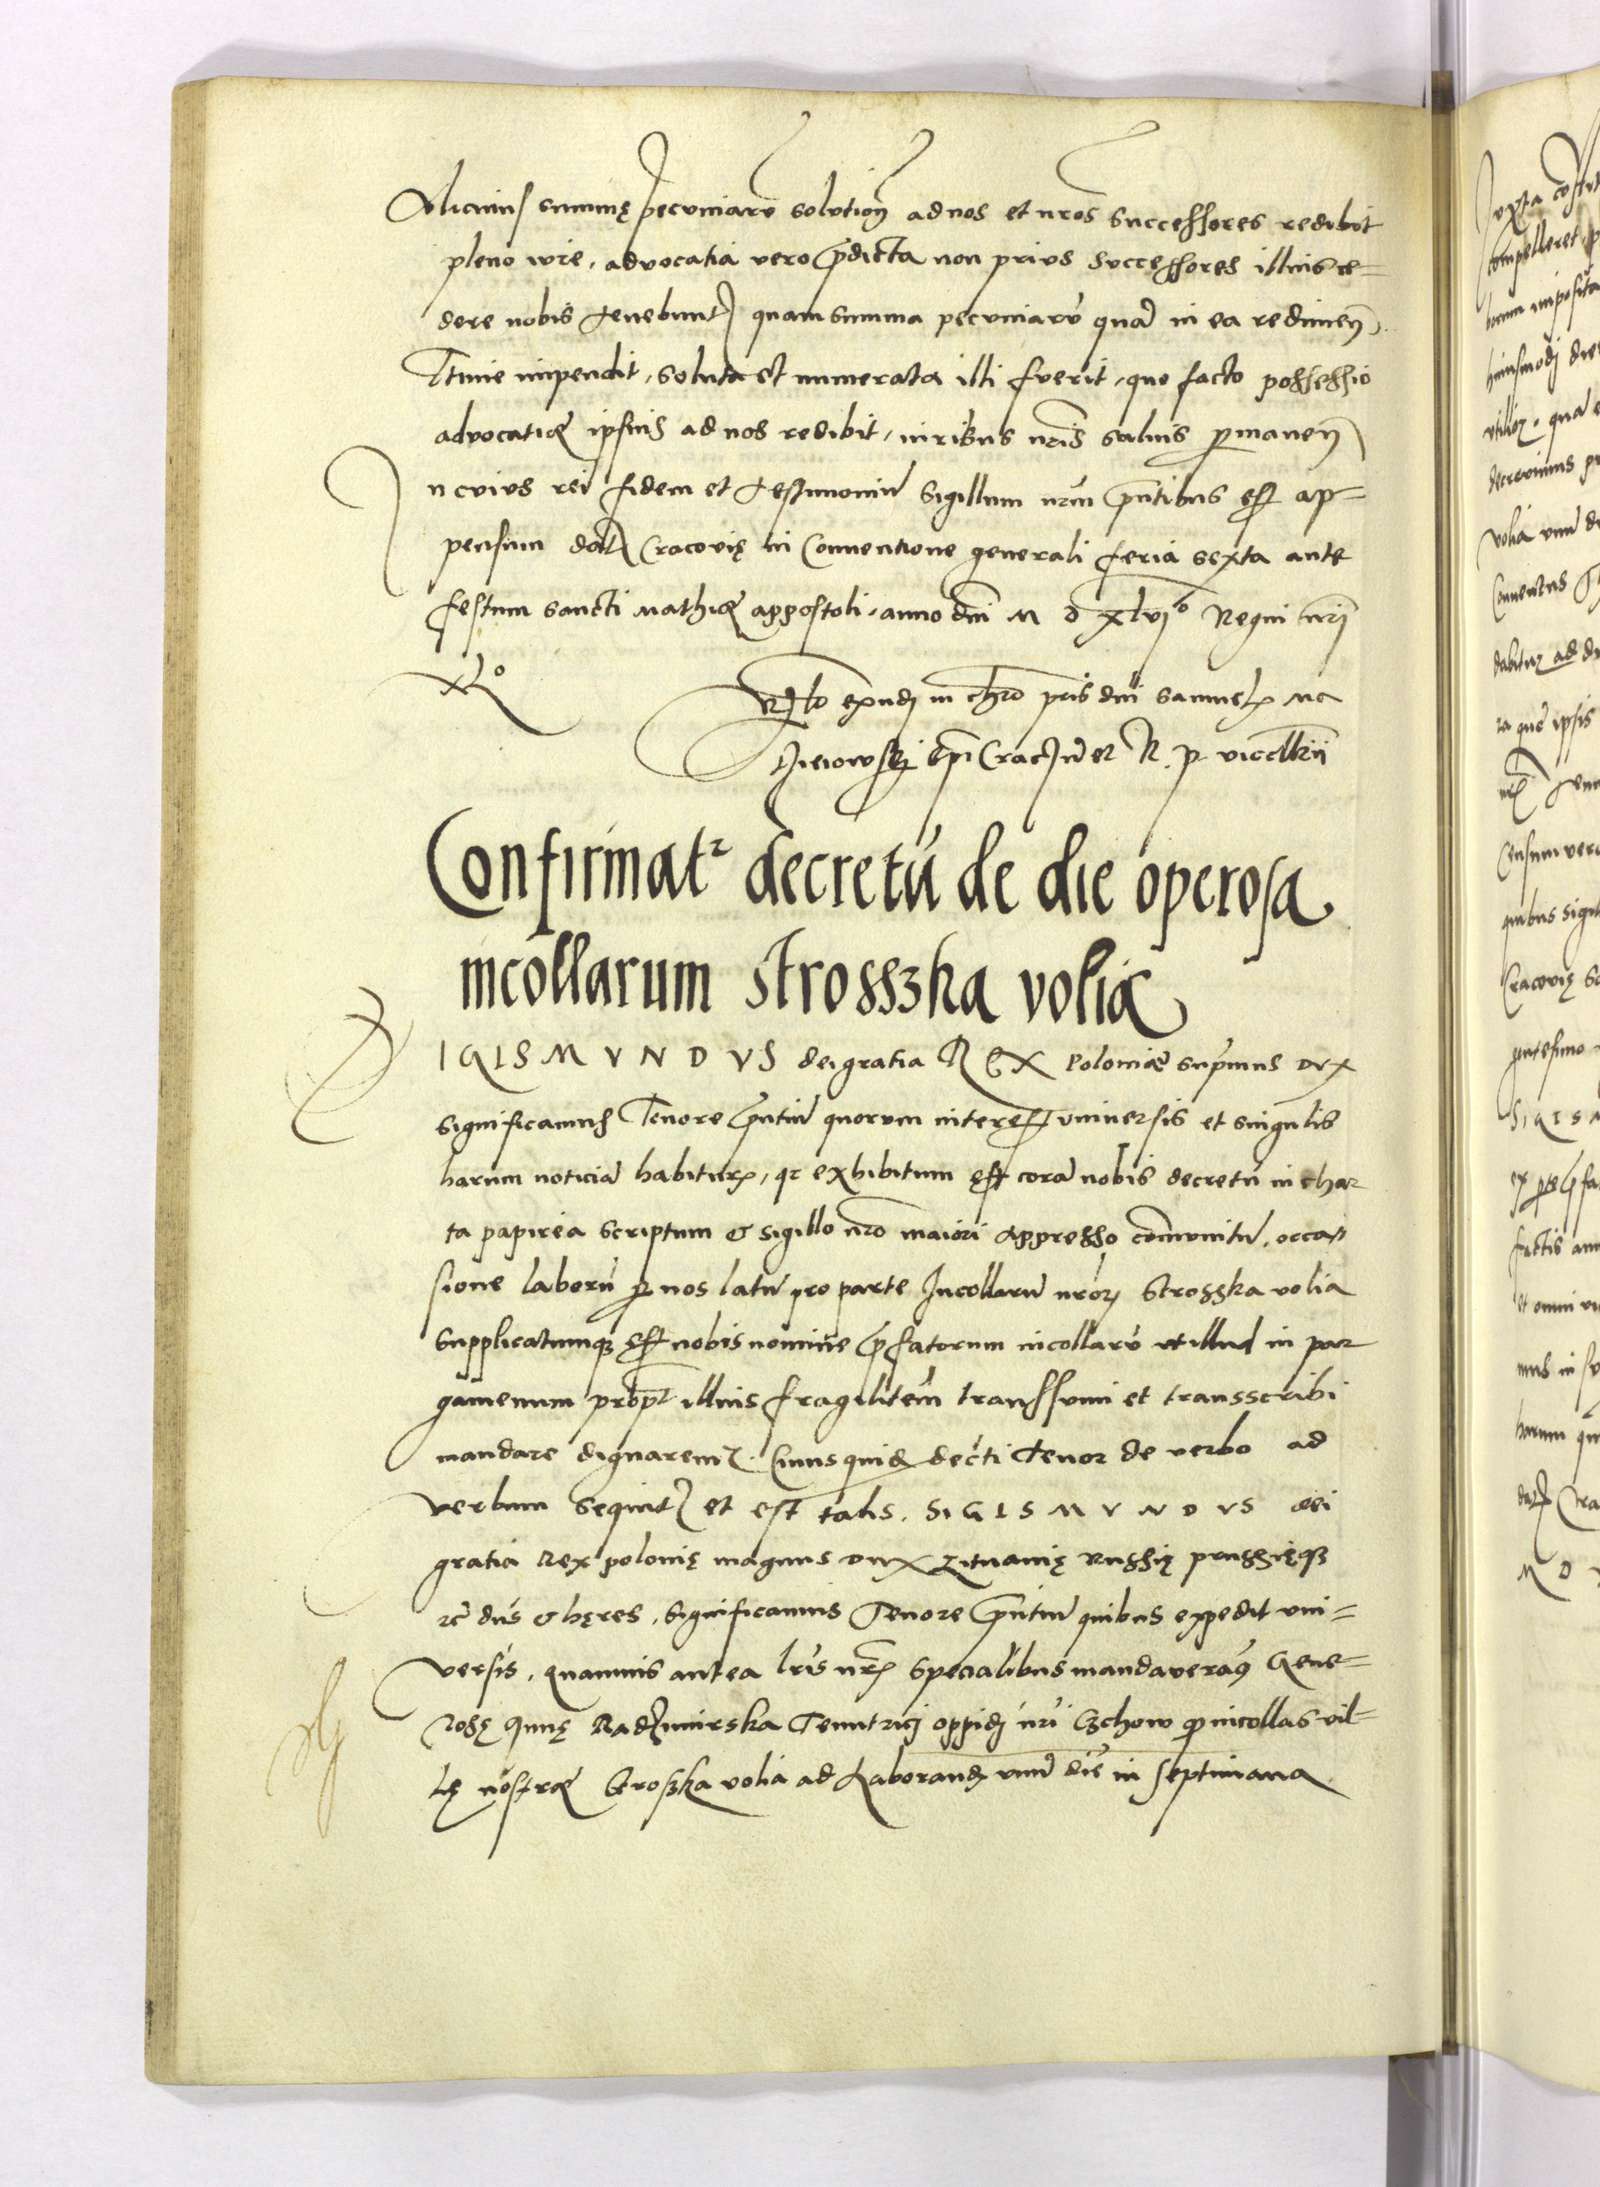 summę pecuniarū solution ad nos et nros successores redibit
pleno iure, advocatia vero p̄dicta non prius successores illius ce=
dere nobis tenebunt quam summa pecuniarū quā in ea redimen
impendit, soluta et numerata illi fuerit, quo facto possessio
advocatiae ipsius ad nos redibit, iuribus nr̄is salvis permanen
In cuius rei fidem et testimoniū sigillum nrm̄ p̄ntibus est ap=
pensum dat Cracovię in Conventione generali feria sexta ante
festum sancti Mathiae appostoli, anno dni M D xlvj° Regni nr̄i
xl°
R̄lo Rndi in chro pr̄is dni Samuel Ma
epi Crac et R. P. vicecllrii
Confirmatr decretū de die operosa
incollarum Strosszka volia
SIGISMVNDVS dei gratia REX Poloniae supremus DVX
significamus Tenore p̄ntiū quorum interest universis et singulis
harum noticiā habitur, qr exhibitum est corā nobis decretū in char
ta papirea scriptum & sigillo nr̄o maiori appresso com̄unitū, occa=
sione laborū per nos latū pro parte Incollarū nror Strosska volia
supplicatumq est nobis nomine p̄fatorum incollarū ut illud in par
gamenum propt illius fragilitem̄ transsumi et transscribi
mandare dignaremr. Cuius quid decti Tenor de verbo ad
verbum sequit et est talis. SIGISMVNDVS dei
gratia Rex polonię magnus Dux Lituanię Russię prussięq
rc̄ dūs & hęres, significamus Tenore p̄ntiū quibus expedit uni=
versis, quamvis antea lr̄is nr̄ specialibus mandaveram9 Gene=
rosę Annę Radzimirska Tenutricj oppidj nr̄i Czchow incollas vil=
lę nostrae Stroska volia ad Laborand unū diē in septimana